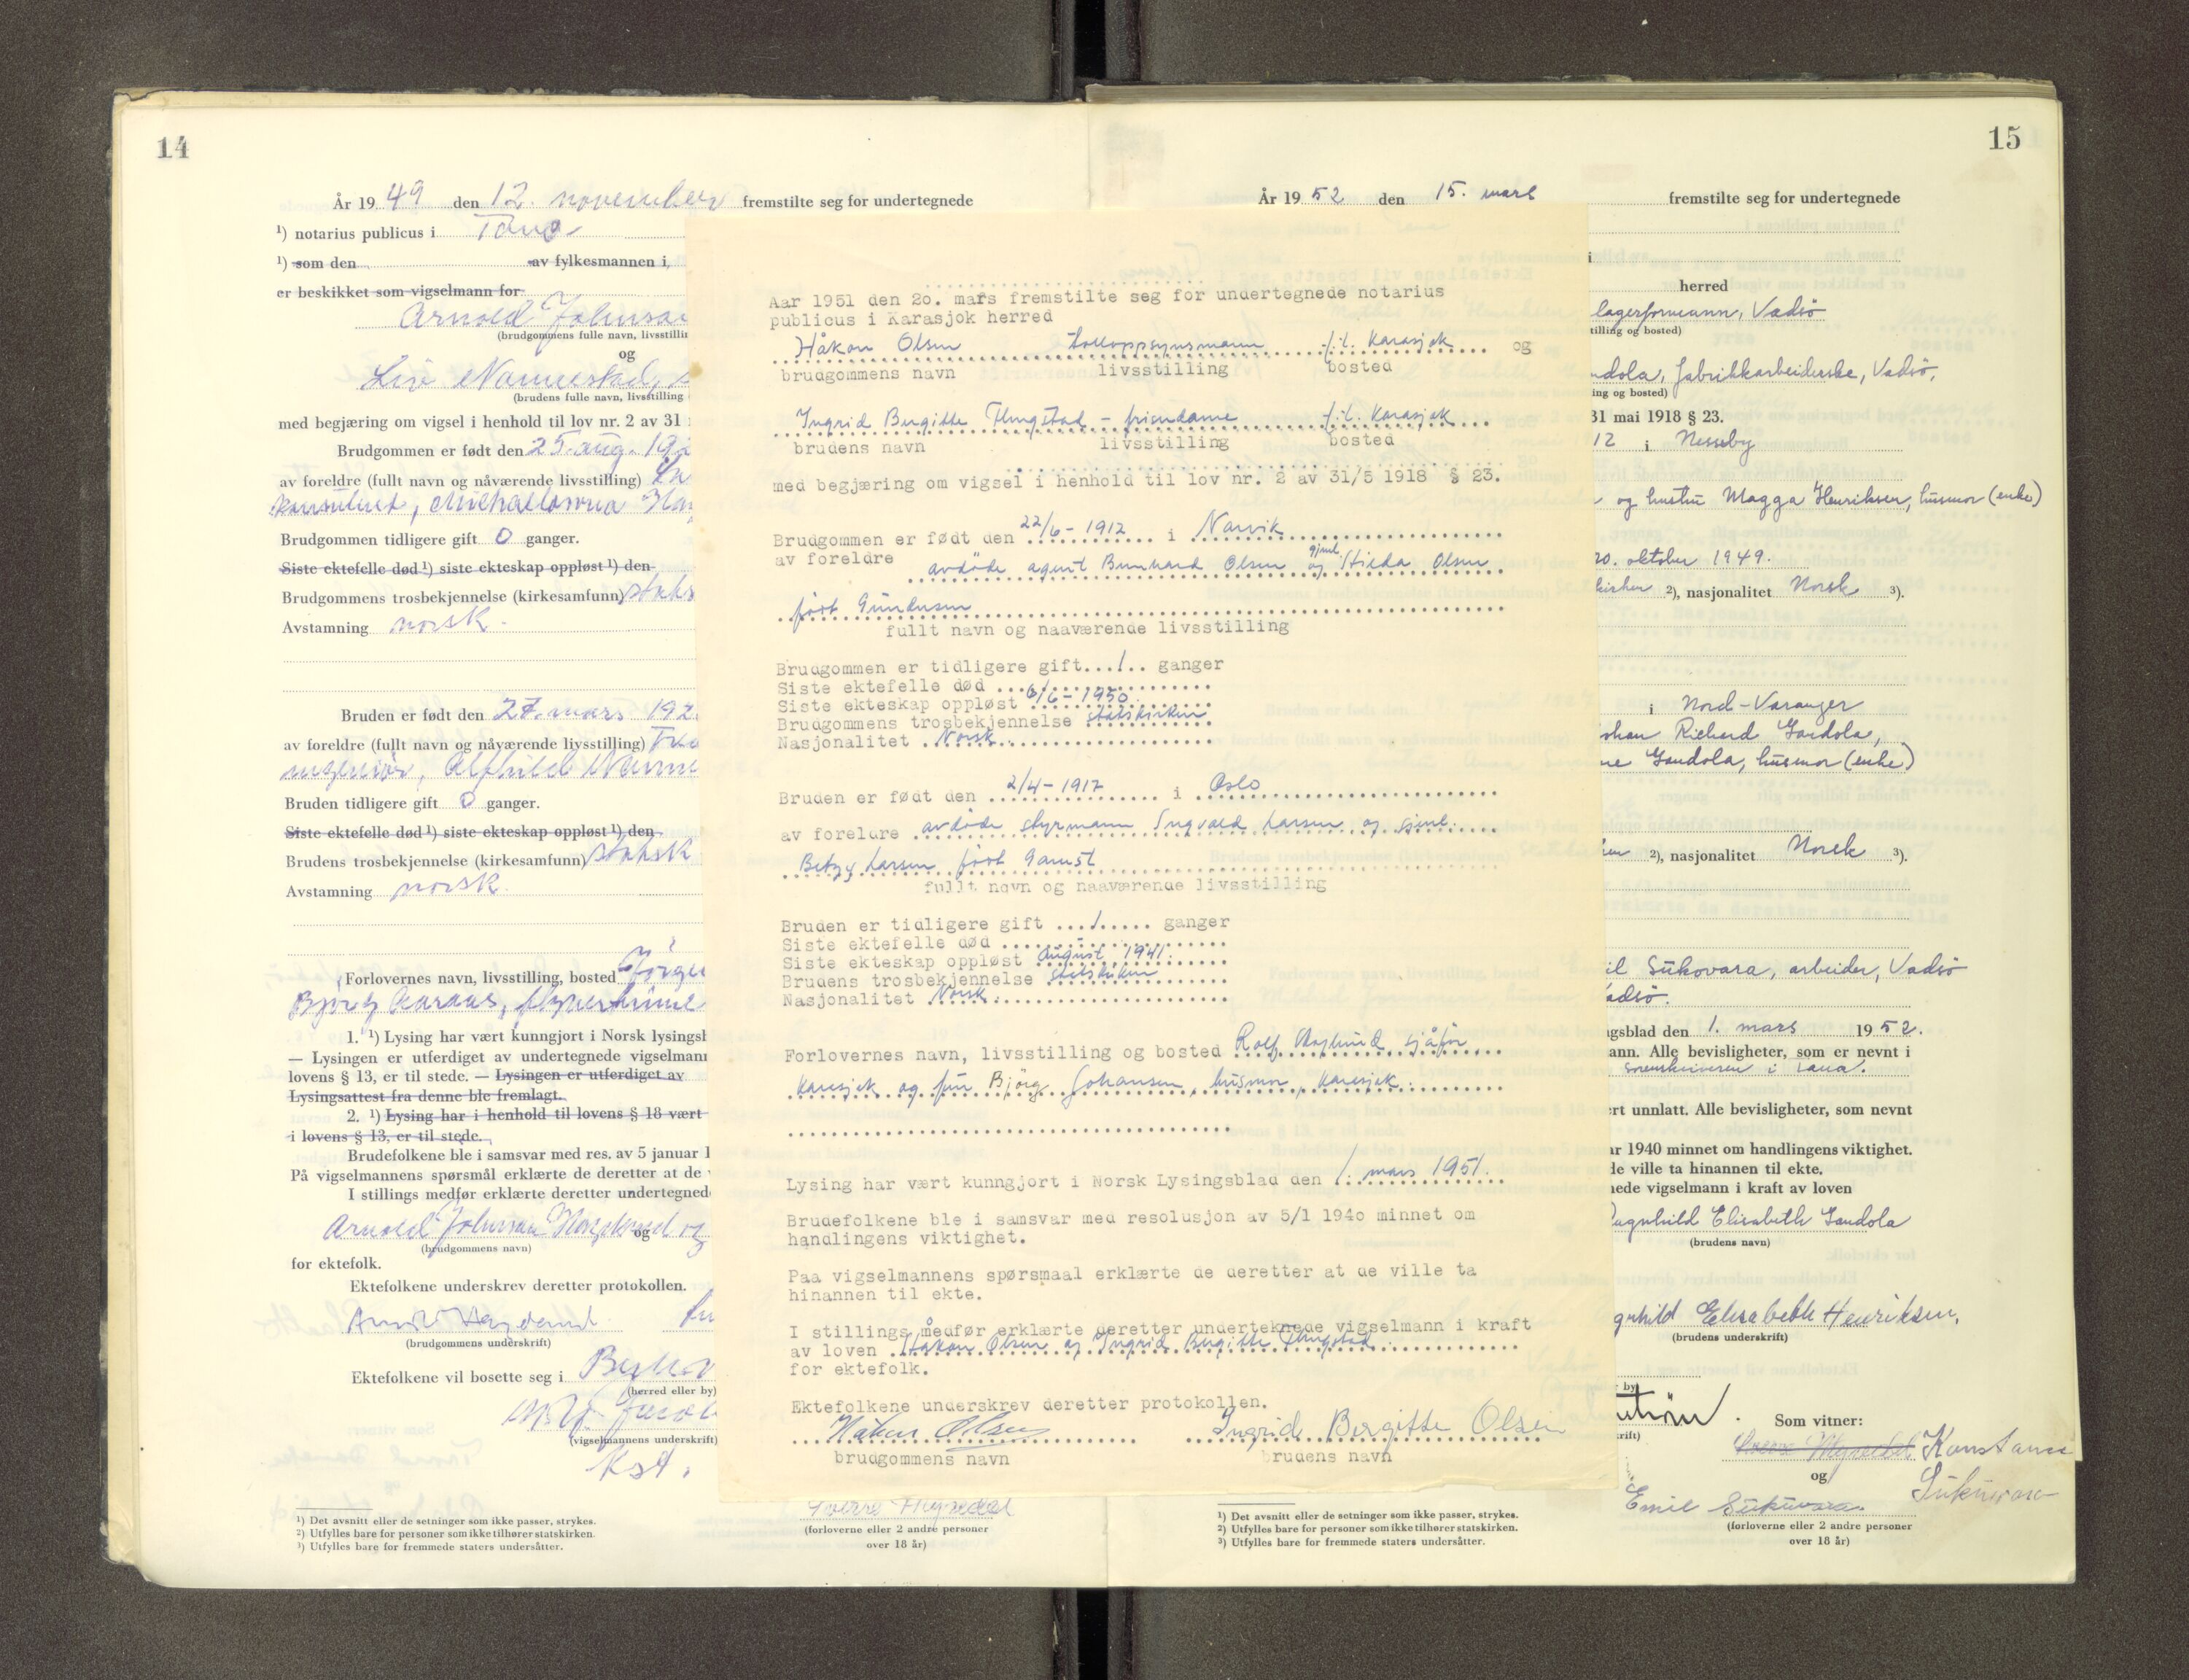 14
År 1949 den 12. november fremstilte seg for undertegnede
¹) notarius publicus i Tana
¹) som den av fylkesmannen i
er beskikket som vigselmann for
Arnold Johnsen
(brudgommens fulle navn, livsstillin
og
Liv Nannestad,
(brudens fulle navn, livsstilling
med begjæring om vigsel i henhold til lov nr. 2 av 31
Brudgommen er født den 25. aug. 19
av foreldre (fullt navn og nåværende livsstilling)
konsulent,
Brudgommen tidligere gift 0 ganger.
Siste ektefelle død ¹) siste ekteskap oppløst ¹) den
Brudgommens trosbekjennelse (kirkesamfunn) stats
Avstamning norsk.
Bruden er født den 27. mars 192
av foreldre (fullt navn og nåværende livsstilling)
ingeniør, Alfhild Nanne
Bruden tidligere gift 0 ganger.
Siste ektefelle død ¹) siste ekteskap oppløst ¹) den
Brudens trosbekjennelse (kirkesamfunn) statsk
Avstamning norsk.
Forlovernes navn, livsstilling, bosted Jørge
Bjørg Aaraas,
1. ¹) Lysing har vært kunngjort i Norsk lysingsb
— Lysingen er utferdiget av undertegnede vigselmann
lovens § 13, er til stede. — Lysingen er utferdiget av
Lysingsattest fra denne ble fremlagt.
2. ¹) Lysing har i henhold til lovens § 18 vært
i lovens § 13, er til stede.
Brudefolkene ble i samsvar med res. av 5 januar 1
På vigselmannens spørsmål erklærte de deretter at de
I stillings medfør erklærte deretter undertegned
Arnold Johnsen og
(brudgommens navn)
for ektefolk.
Ektefolkene underskrev deretter protokollen.
(brudgommens underskrift)
Ektefolkene vil bosette seg i
(herred eller by)
(vigselmannens underskrift)
Kst.
¹) Det avsnitt eller de setninger som ikke passer, strykes.
²) Utfylles bare for personer som ikke tilhører statskirken.
³) Utfylles bare for fremmede staters undersåtter.
Sverre Myredal
(forloverne eller 2 andre personer
over 18 år)
Aar 1951 den 20. mars fremstilte seg for undertegnede notarius
publicus i Karasjok herred
Håkon Olsen tolloppsynsmann f.t. Karasjok og
brudgommens navn livsstilling bosted
Ingrid Bergitte Thingstad – frisørdame f.t. Karasjok
brudens navn livsstilling bosted
med begjæring om vigsel i henhold til lov nr. 2 av 31/5 1918 § 23.
Brudgommen er født den 22/6 – 1912 i Narvik
av foreldre avdøde agent Bernhard Olsen og gjenl. Hilda Olsen
født Gundersen
fullt navn og naaværende livsstilling
Brudgommen er tidligere gift...1.. ganger
Siste ektefelle død
Siste ekteskap oppløst 6/6 – 1950
Brudgommens trosbekjennelse statskirken
Nasjonalitet Norsk.
Bruden er født den 2/4 – 1917 i Oslo
av foreldre avdøde styrmann Ingvald Larsen og gjenl.
Betzy Larsen født
fullt navn og naaværende livsstilling
Bruden er tidligere gift ....1..... ganger
Siste ektefelle død
Siste ekteskap oppløst august 1941.
Brudens trosbekjennelse statskirken
Nasjonalitet Norsk.
Forlovernes navn, livsstilling og bosted Rolf sjåfør,
Karasjok og fru Bjørg Johansen, husmor, Karasjok.
Lysing har vært kunngjort i Norsk Lysingsblad den 1. mars 1951.
Brudefolkene ble i samsvar med resolusjon av 5/1 1940 minnet om
handlingens viktighet.
Paa vigselmannens spørsmaal erklærte de deretter at de ville ta
hinannen til ekte.
I stillings medfør erklærte deretter underteknede vigselmann i kraft
av loven Håkon Olsen og Ingrid Bergitte Thingstad
for ektefolk.
Ektefolkene underskrev deretter protokollen.
Håkon Olsen Ingrid Bergitte Olsen
brudgommens navn brudens navn
15
År 1952 den 15. mars fremstilte seg for undertegnede
herred
lagerformann, Vadsø
tilling og bosted)
ndola, fabrikkarbeiderske, Vadsø,
ing og bosted)
31 mai 1918 § 23.
12 i Nesseby
og hustru Magga Henriksen, husmor (enke)
20. oktober 1949.
kirken ²), nasjonalitet Norsk ³).
i Nord-Varanger
ohan Richard Gandola,
ne Gandola, husmor (enke)
²), nasjonalitet Norsk ³).
il Sukovara, arbeider, Vadsø
adsø.
ngsblad den 1. mars 1952.
ann. Alle bevisligheter, som er nevnt i
sorenskriveren i Tana.
rt unnlatt. Alle bevisligheter, som nevnt
ar 1940 minnet om handlingens viktighet.
de ville ta hinannen til ekte.
nede vigselmann i kraft av loven
agnhild Elisabeth Gandola
(brudens navn)
gnhild Elisabeth Henriksen,
(brudens underskrift)
by
Som vitner:
rift)
Konstanse
og Sukuvara
Emil Sukuvara
(forloverne eller 2 andre personer
over 18 år)
¹) Det avsnitt eller de setninger som ikke passer, strykes.
²) Utfylles bare for personer som ikke tilhører statskirken.
³) Utfylles bare for fremmede staters undersåtter.